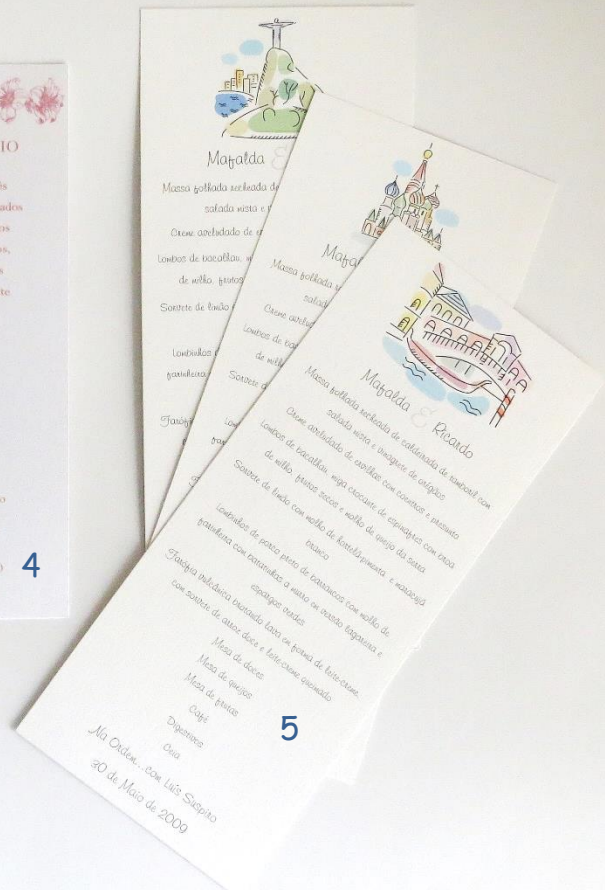 IO
s
ados
os
s,
s
te
o
4
Mafalda &
Massa folhada recheada de
salada mista e
Creme aveludado de
Lombos de bacalhau,
de milho, frutos
Sorvete de limão
Lombinhos
farinheira
Farófia
Mafal
Massa folhada
salad
Creme avelu
Lombos de ba
de milh
Sorvete d
Mafalda & Ricardo
Massa folhada recheada de caldeirada de tamboril com
salada mista e vinagrete de orégãos
Creme aveludado de ervilhas com coentros e presunto
Lombos de bacalhau, miga crocante de espinafres com broa
de milho, frutos secos e molho de queijo da serra
branco
Sorvete de limão com molho de hortelã-pimenta e maracujá
Lombinhos de porco preto de barrancos com molho de
farinheira com batatinhas a murro em versão lagareira e
espargos verdes
Farófia vulcânica brotando lava em forma de leite-creme,
com sorvete de arroz doce e leite-creme queimado
Mesa de doces
Mesa de queijos
Mesa de frutas
Café
Digestivos
Ceia
Na Ordem... com Luís Suspiro
30 de Maio de 2009
5